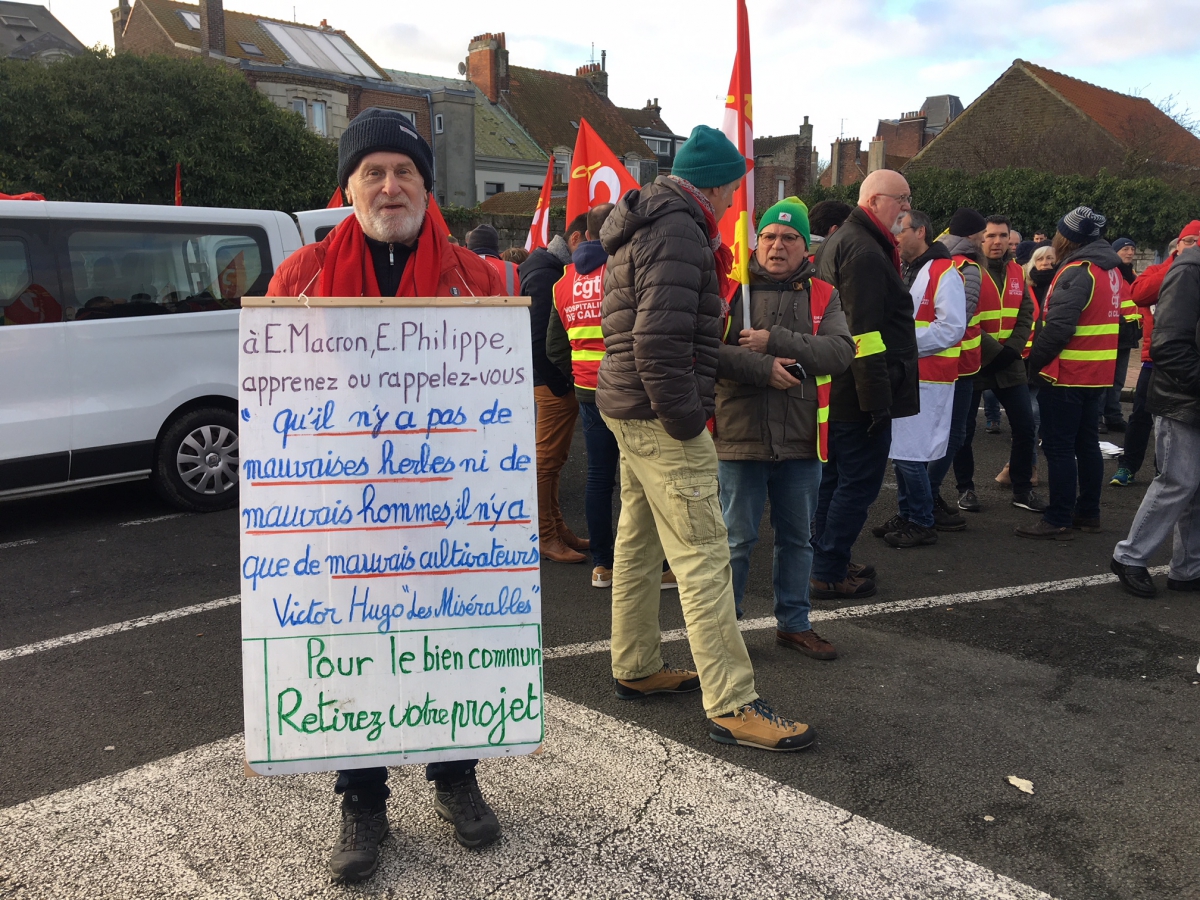 à E. Macron, E. Philippe,
apprenez ou rappelez-vous
"qu'il n'y a pas de
mauvaises herbes ni de
mauvais hommes, il n'y a
que de mauvais cultivateurs"
Victor Hugo "Les Misérables"
Pour le bien commun
Retirez votre projet
cgt
HOSPITALI
DE CALAI
cgt